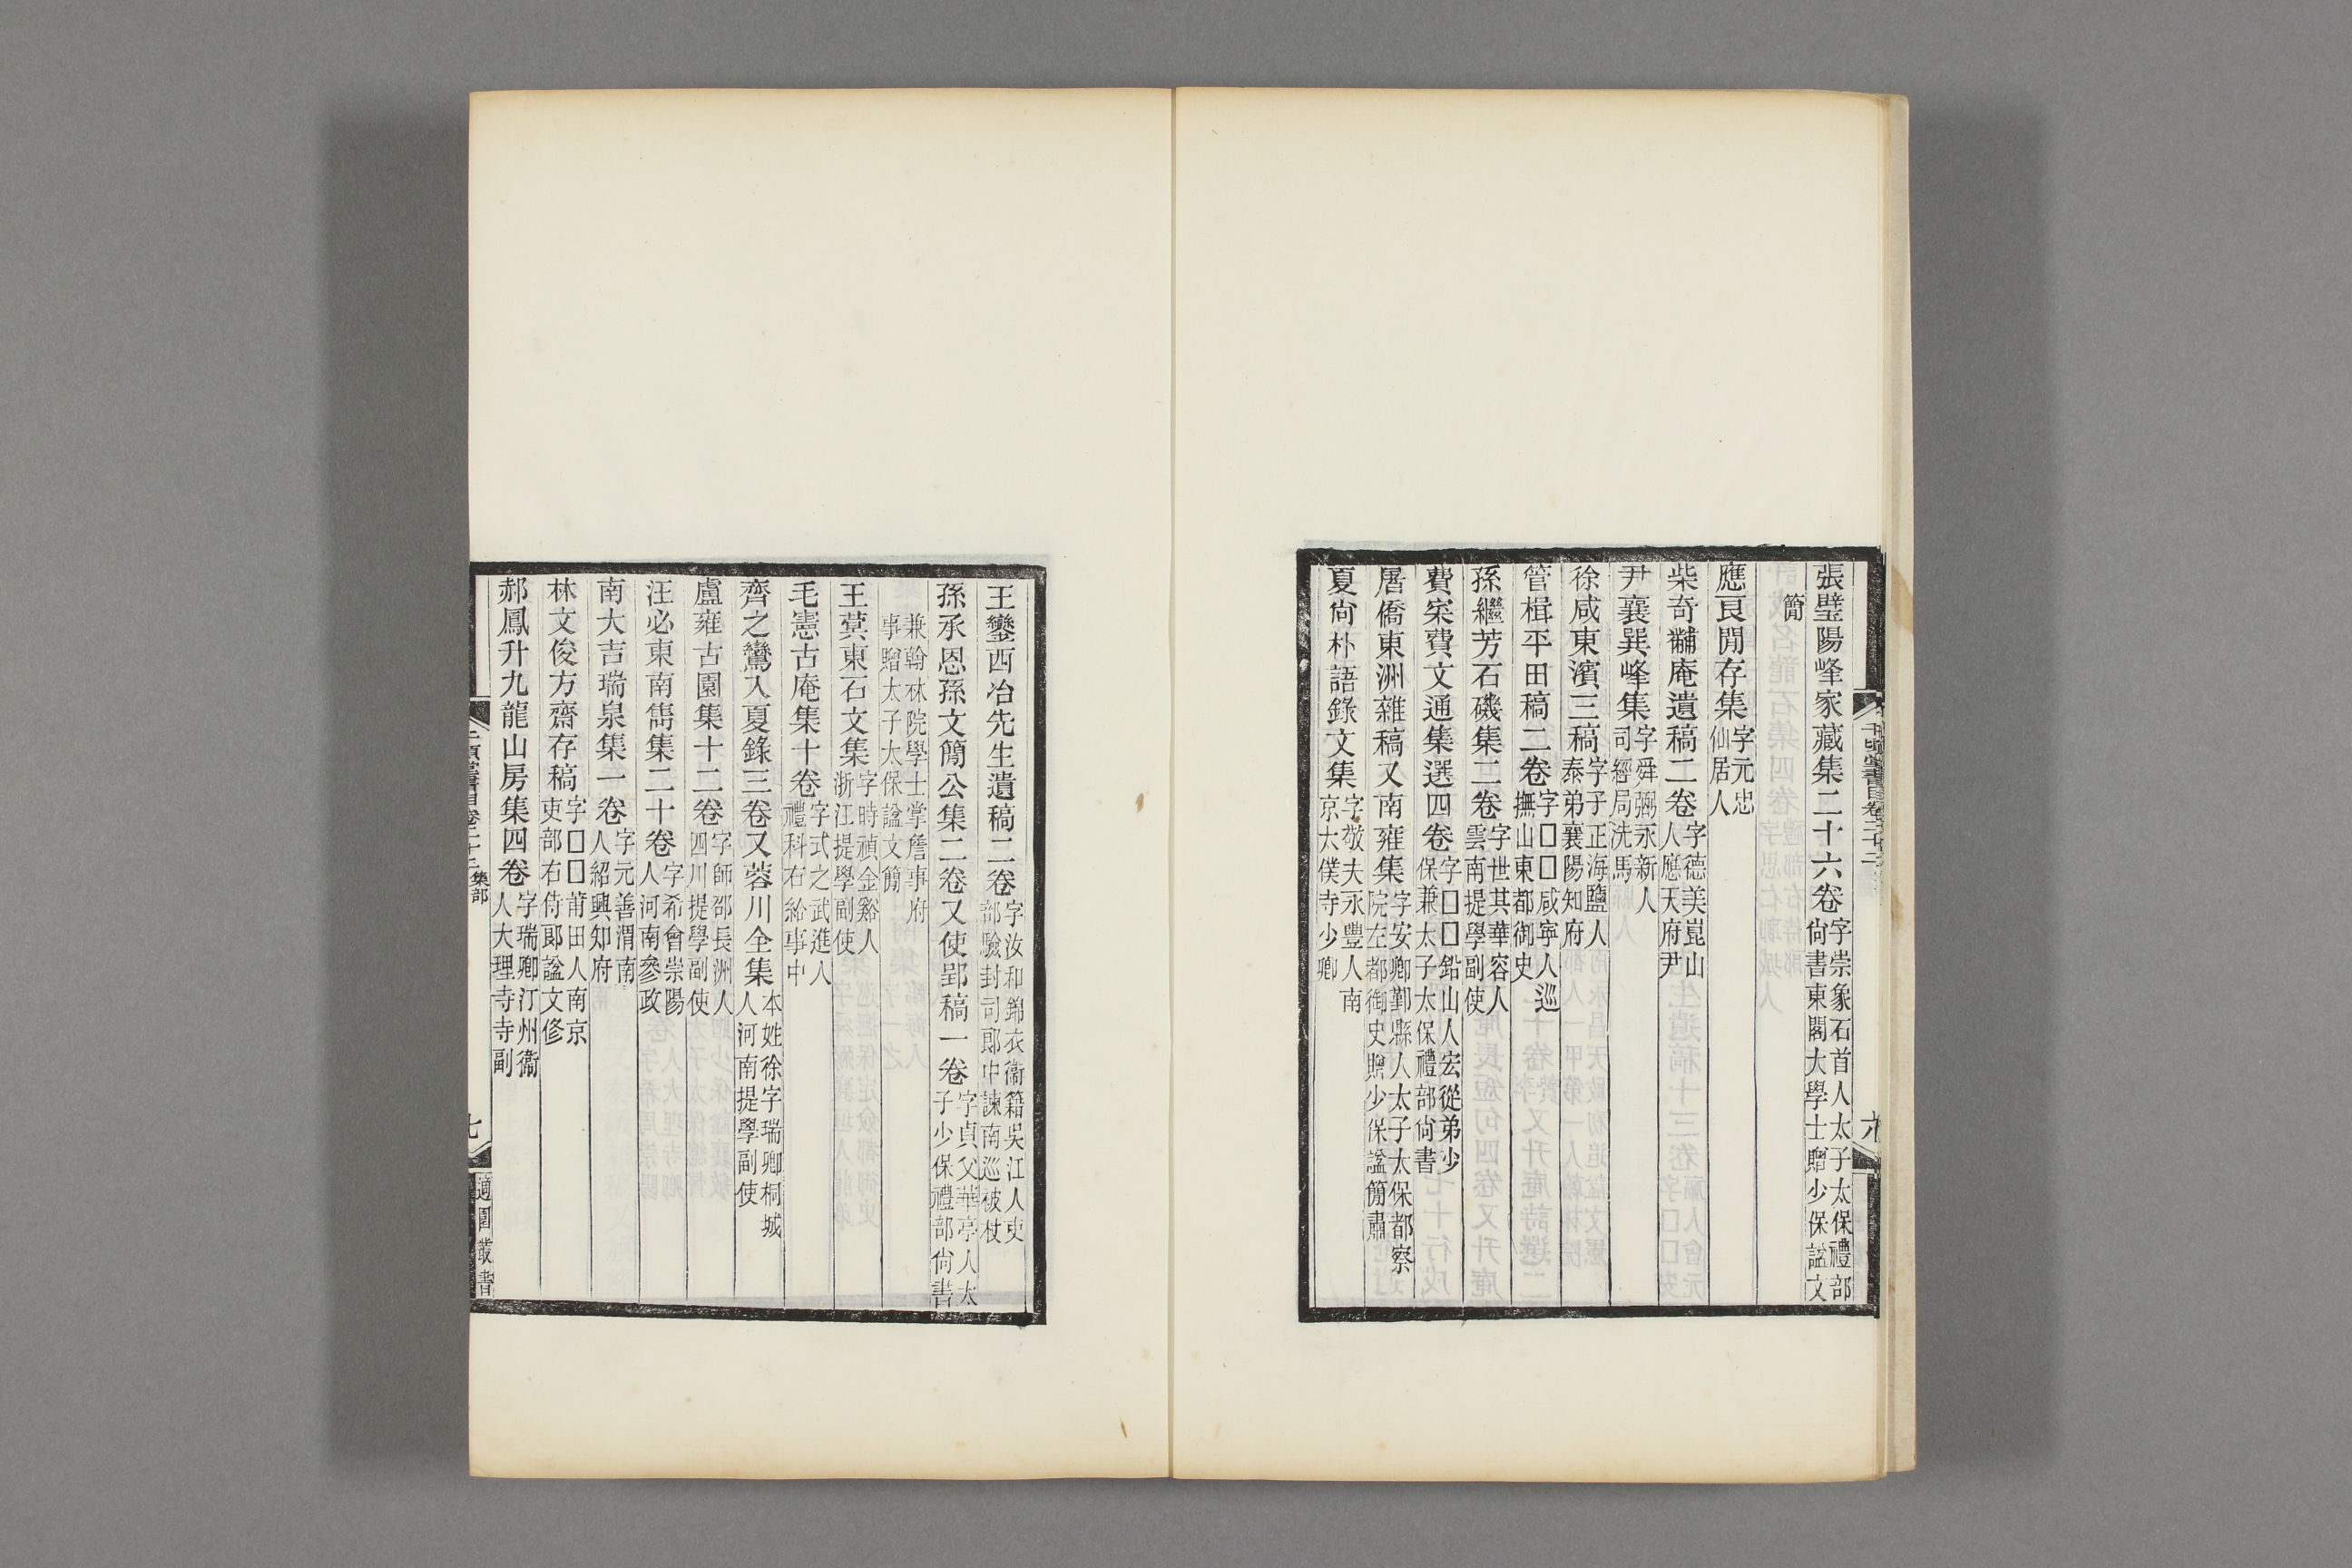 張璧陽峰家藏集二十六卷字崇象石首人太子太保禮部尙書東閣大學士贈少保諡文
簡
應良閒存集字元忠仙居人
柴奇黼庵遺稿二卷字德美崑山人應天府尹
尹襄巽峰集字舜弼永新人司經局洗馬
徐咸東濱三稿字子正海鹽人泰弟襄陽知府
管楫平田稿二卷字□□咸寧人巡撫山東都御史
孫繼芳石磯集二卷字世其華容人雲南提學副使
費寀費文通集選四卷字□□鉛山人宏從弟少保兼太子太保禮部尙書
屠僑東洲雜稿又南雍集字安卿鄞縣人太子太保都察院左都御史贈少保諡簡肅
夏尙朴語錄文集字敬夫永豐人南京太僕寺少卿
千頃堂書目卷二十二
六
王鑾西冶先生遺稿二卷字汝和錦衣衞籍吳江人吏部驗封司郎中諫南巡被杖
孫承恩孫文簡公集二卷又使郢稿一卷字貞父華亭人太子少保禮部尙書
兼翰林院學士掌詹事府事贈太子太保諡文簡
王蓂東石文集字時禎金谿人浙江提學副使
毛憲古庵集十卷字式之武進人禮科右給事中
齊之鸞入夏錄三卷又蓉川全集本姓徐字瑞卿桐城人河南提學副使
盧雍古園集十二卷字師邵長洲人四川提學副使
汪必東南雋集二十卷字希會崇陽人河南參政
南大吉瑞泉集一卷字元善渭南人紹興知府
林文俊方齋存稿字□□莆田人南京吏部右侍郎諡文修
郝鳳升九龍山房集四卷字瑞卿汀州衞人大理寺寺副
千頃堂書目卷二十二集部
七
適園叢書